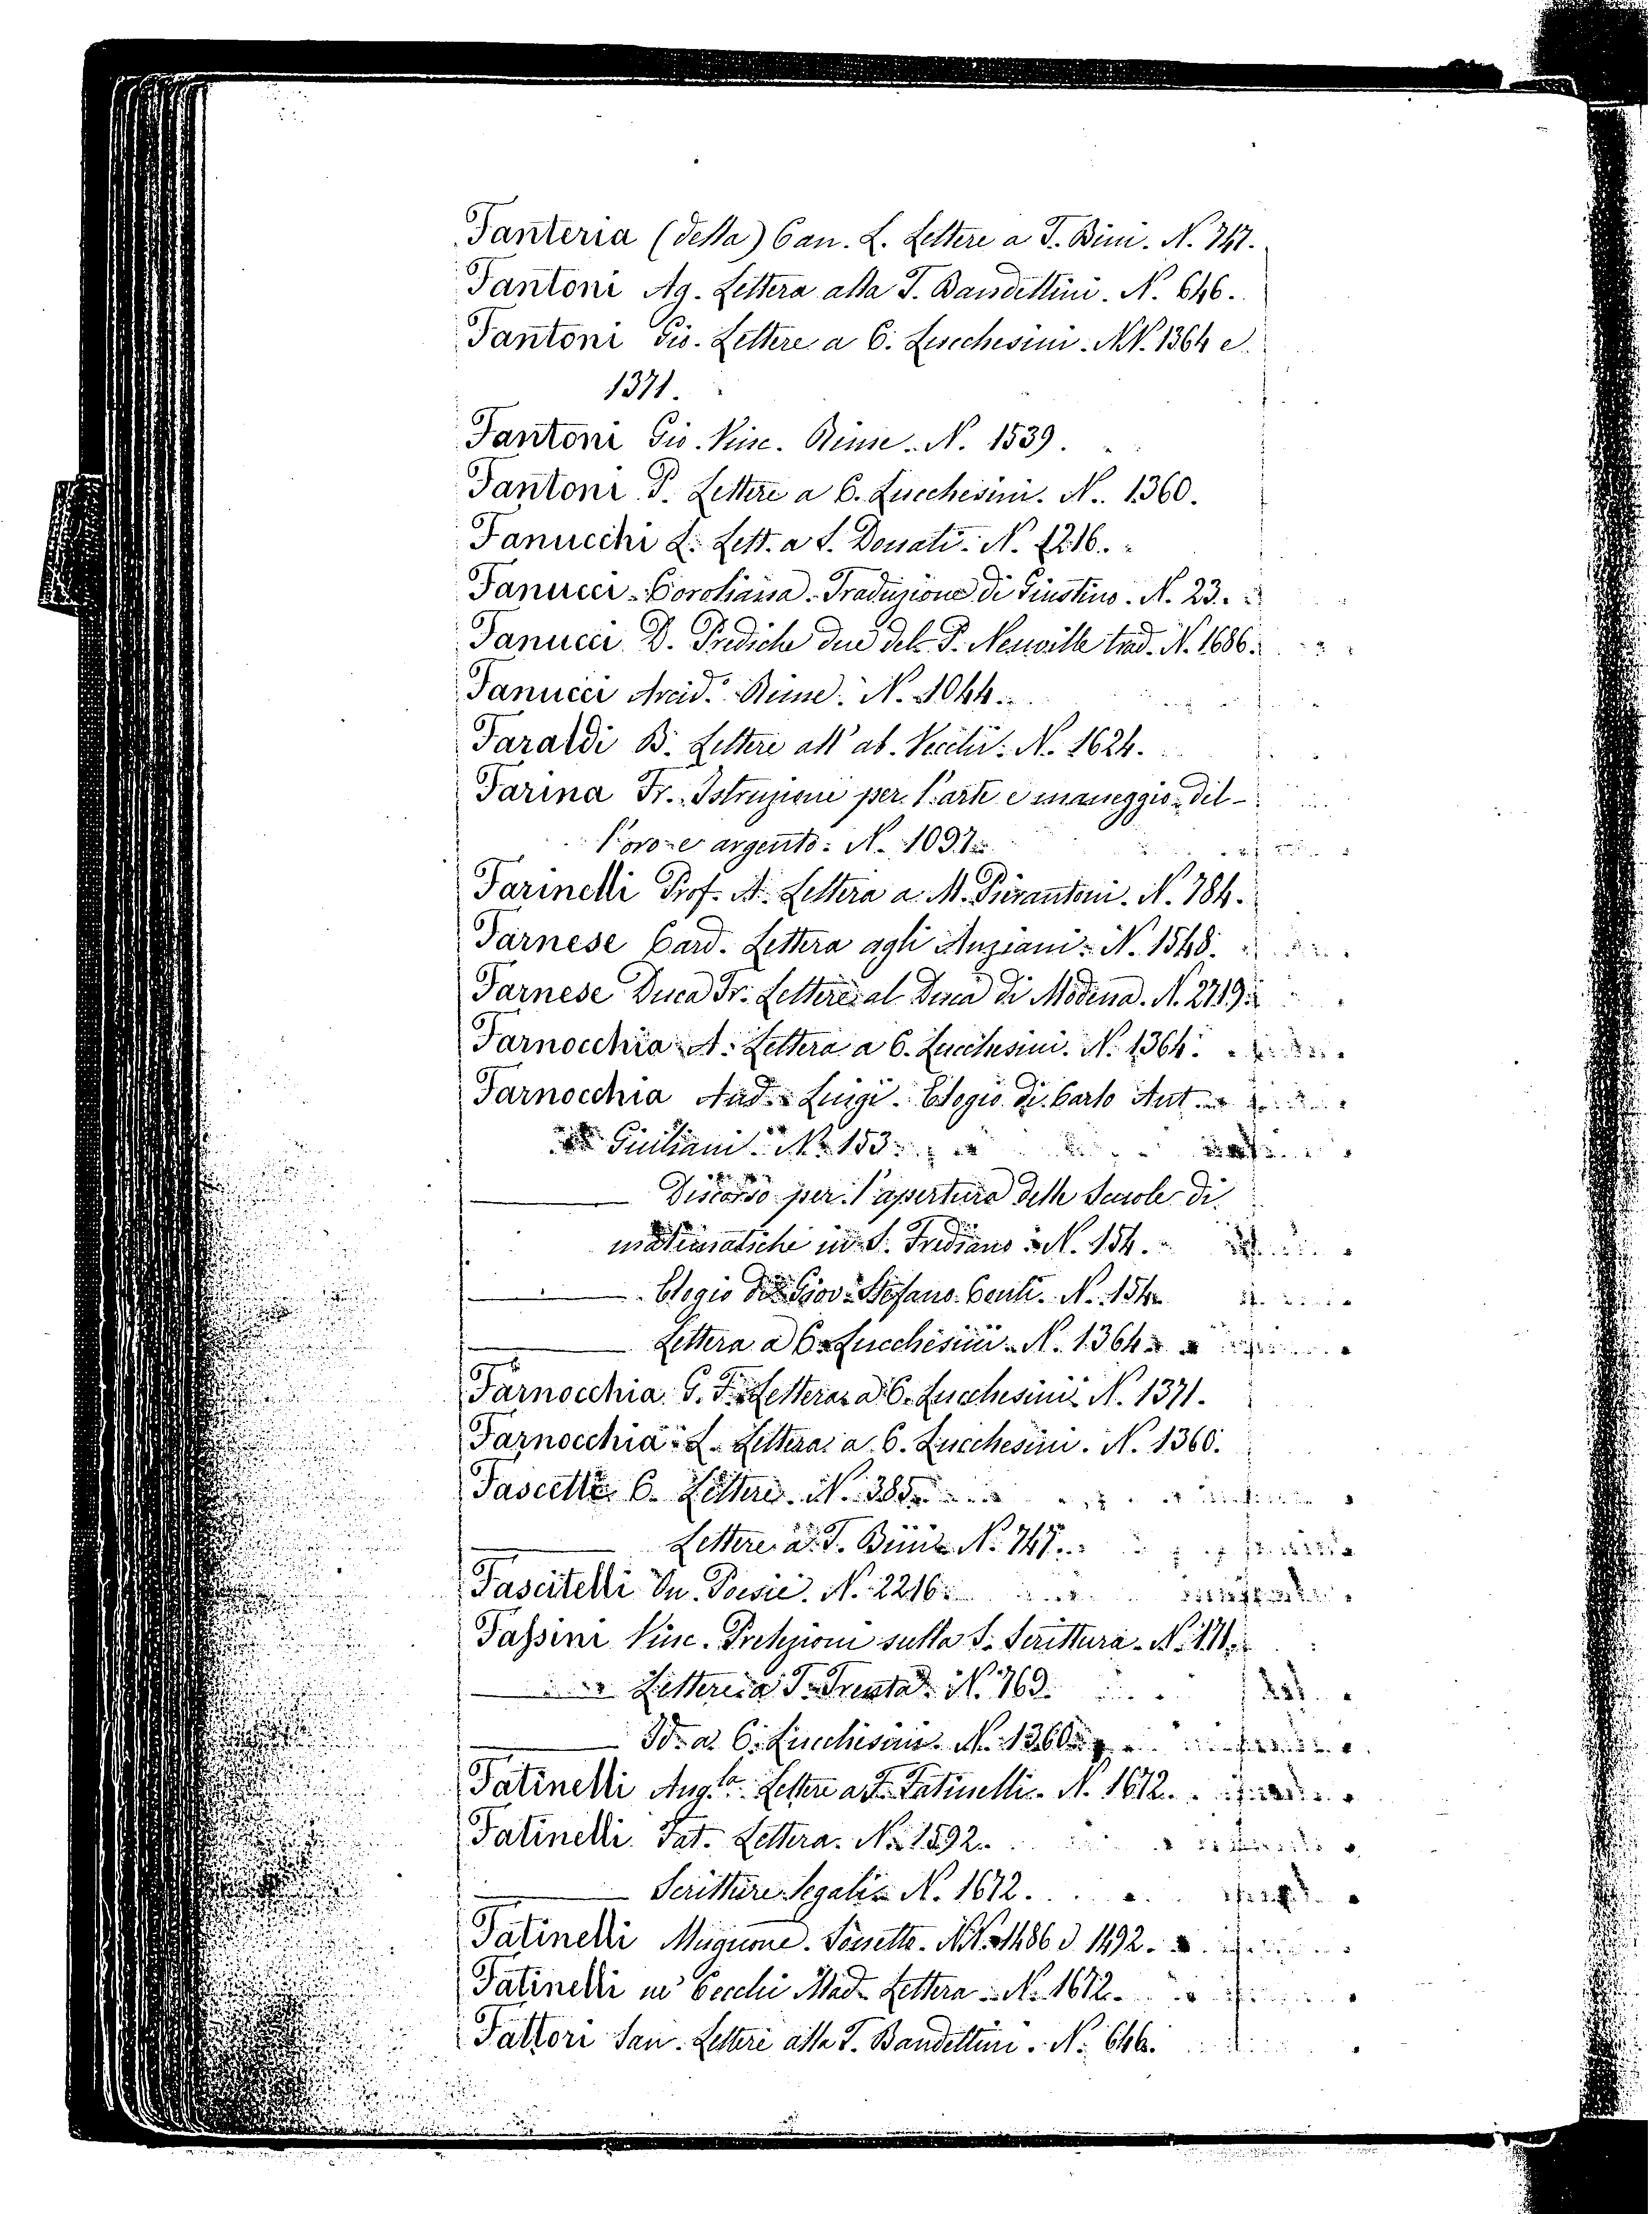 Fanteria (della) Can. L. Lettere a T. Bini. N. 747.
Fantoni Ag. Lettera alla T. Bandettini. N. 646.
Fantoni Gio. Lettere a C. Lucchesini. NN. 1364 e
1371.
Fantoni Gio. Vinc. Rime. N. 1539.
Fantoni P. Lettere a C. Lucchesini. N. 1360.
Fanucchi L. Lett. a S. Donati. N. 1216.
Fanucci Coroliana. Traduzione di Giustino. N. 23.
Fanucci D. Prediche due del P. Neuville trad. N. 1686.
Fanucci Arcid. Rime. N. 1044.
Faraldi B. Lettere all' ab. Vecchi. N. 1624.
Farina Fr. Istruzioni per l'arte e maneggio del-
l'oro e argento. N. 1097.
Farinelli Prof. A. Lettera a M. Pierantoni. N. 784.
Farnese Card. Lettera agli Anziani. N. 1548.
Farnese Duca Fr. Lettere al Duca di Modena. N. 2719.
Farnocchia A. Lettera a C. Lucchesini. N. 1364.
Farnocchia And. Luigi. Elogio di Carlo Ant.
Giuliani. N. 153.
Discorso per l'apertura delle Scuole di
matematiche in S. Frediano. N. 154.
Elogio di Giov. Stefano Conti. N. 154.
Lettera a C. Lucchesini. N. 1364.
Farnocchia G. F. Lettera a C. Lucchesini. N. 1371.
Farnocchia L. Lettera a C. Lucchesini. N. 1360.
Fascetti C. Lettere. N. 385.
Lettere a T. Bini. N. 747.
Fascitelli On. Poesie. N. 2216.
Fassini Vinc. Prelezioni sulla S. Scrittura. N. 171.
Lettere a T. Trenta. N. 763.
Id. a C. Lucchesini. N. 1360.
Fatinelli Aug.la Lettere a F. Fatinelli. N. 1672.
Fatinelli Fat. Lettera. N. 1592.
Scritture legali. N. 1672.
Fatinelli Mugnone. Sonetto. NN. 1486 e 1492.
Fatinelli ne' Cecchi Mad. Lettera. N. 1672.
Fattori San. Lettere alla T. Bandettini. N. 646.